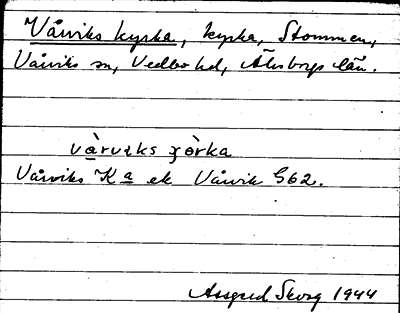 Vårviks kyrka, kyrka, Stommen,
Vårviks sn, Vedbo hd, Älvsborgs län.
vàrvɩks ʒòrka
Vårviks Ka ek Vårvik G62.
Assgerd Skog 1944